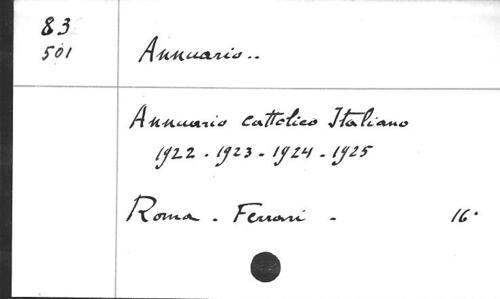 83
501
Annuario..
Annuario cattolico Italiano
1922 - 1923 - 1924 - 1925
Roma - Ferrari - 16°